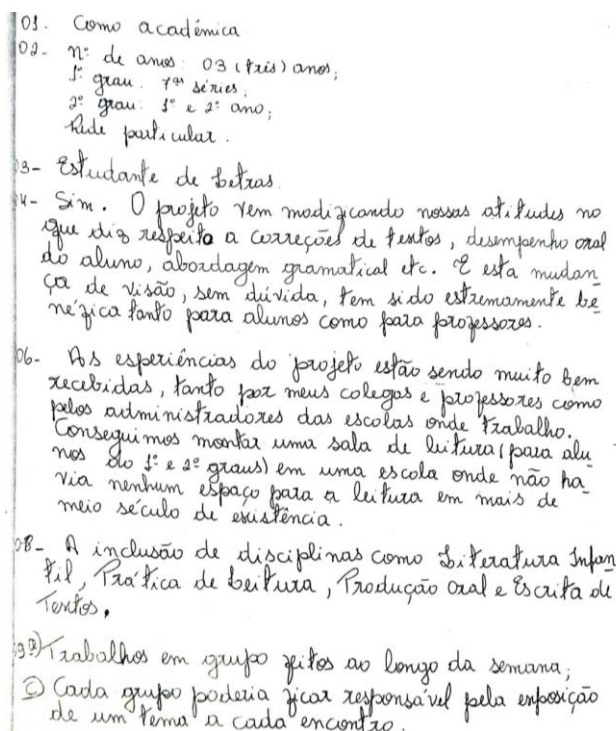 01. Como acadêmica
02- nº de anos: 03 (três) anos;
1º grau: 7ªs séries;
2º grau: 1º e 2º ano;
Rede particular.
3- Estudante de Letras.
4- Sim. O projeto vem modificando nossas atitudes no
que diz respeito a correções de textos, desempenho oral
do aluno, abordagem gramatical etc. E esta mudan
ça de visão, sem dúvida, tem sido estremamente be
néfica tanto para alunos como para professores.
06- As experiências do projeto estão sendo muito bem
recebidas, tanto por meus colegas e professores como
pelos administradores das escolas onde trabalho.
Conseguimos montar uma sala de leitura (para alu
nos do 1º e 2º graus) em uma escola onde não ha
via nenhum espaço para a leitura em mais de
meio século de existência.
08- A inclusão de disciplinas como Literatura Infan
til, Prática de Leitura, Produção Oral e Escrita de
Textos.
9 a) Trabalhos em grupo feitos ao longo da semana;
c) Cada grupo poderia ficar responsável pela exposição
de um tema a cada encontro.